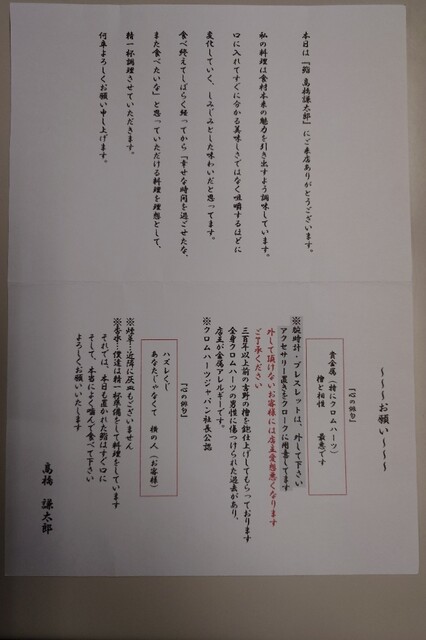 本日は『鮨 高橋謙太郎』にご来店ありがとうございます。
私の料理は食材本来の魅力を引き出すよう調味しています。
口に入れてすぐに分かる美味しさではなく咀嚼するほどに
変化していく、しみじみとした味わいだと思ってます。
食べ終えてしばらく経ってから『幸せな時間を過ごせたな、
また食べたいな』と思っていただける料理を理想として、
精一杯調理させていただきます。
何卒よろしくお願い申し上げます。
～～～お願い～～～
『心の俳句』
貴金属（特にクロムハーツ）
檜と相性 最悪です
※腕時計・ブレスレットは、外して下さい
アクセサリー置きをクロークに用意してます
外して頂けないお客様には店主愛想悪くなります
ご了承ください
三百年以上前の吉野の檜を鉋仕上げしてもらっております
全身クロムハーツの男性に傷つけられた過去があり、
店主が金属アレルギーです。
※クロムハーツジャパン社長公認
『心の俳句』
ハズレくじ
あなたじゃなくて 横の人（お客様）
※煙草…近隣に灰皿もございません
※香水…僕達は精一杯準備をして料理をしています
それでは、本日も置かれた鮨はすぐ口に
そして、本当によく噛んで食べて下さい
よろしくお願いいたします
高橋 謙太郎